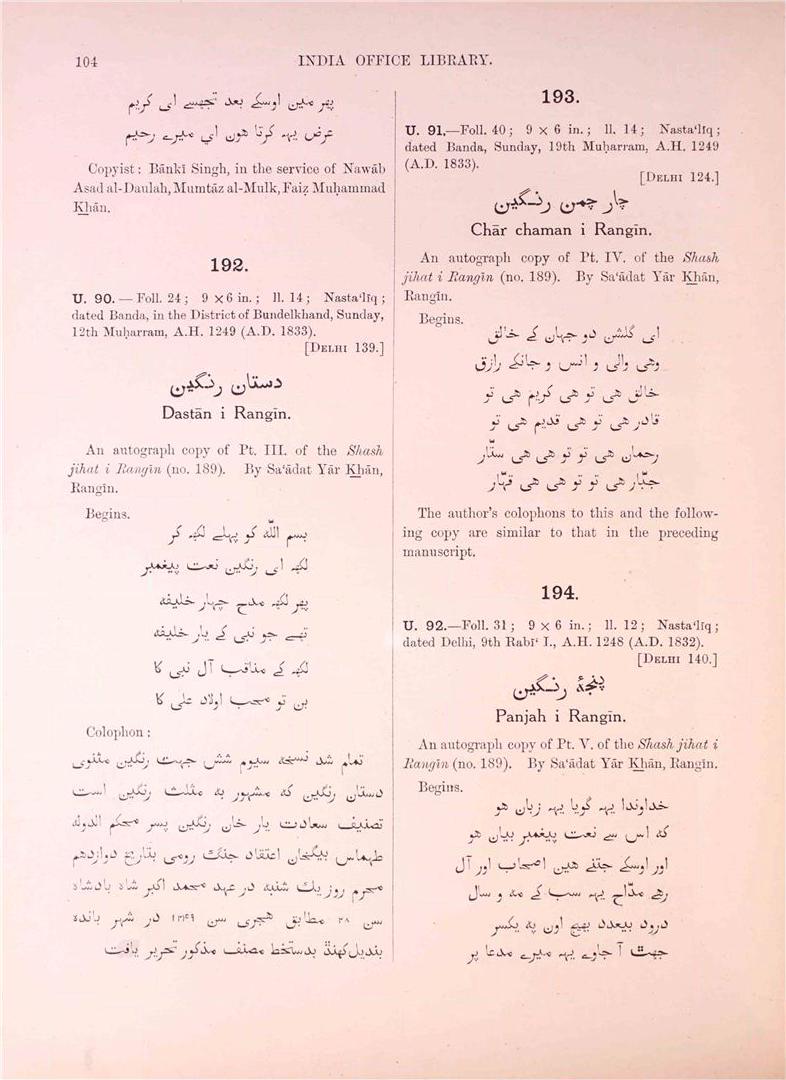 104
INDIA OFFICE LIBRARY.
پهر مین اوسکے بعد تجهسے ای کریم
عرض یہہ کرتا هون ای میرے رحیم
Copyist: Bānkī Singh, in the service of Nawāb
Asad al-Daulah, Mumtāz al-Mulk, Faiẓ Muḥammad
Khān.
192.
U. 90.—Foll. 24; 9 × 6 in.; ll. 14; Nasta‘līq;
dated Banda, in the District of Bundelkhand, Sunday,
12th Muḥarram, A.H. 1249 (A.D. 1833).
[DELHI 139.]
دستان رنگین
Dastān i Rangīn.
An autograph copy of Pt. III. of the Shash
jihat i Rangīn (no. 189). By Sa‘ādat Yār Khān,
Rangīn.
Begins.
بسم اللّه کو پہلے لکهہ کر
لکهہ ای رنگین نعت پیغمبر
پهر لکهہ مدح چہار خلیفه
تهے جو نبی کے یار خلیفه
لکهہ کے مناقب آل نبی کا
بن تو محب اولاد علی کا
Colophon:
تمام شد نسخه سیوم شش جہت رنگین مثنوی
دستان رنگین که مشہور به مثلث رنگین است
تصنیف سعادت یار خان رنگین پسر محکم الدوله
طہماس بیگخان اعتقاد جنگ رومی بتاریخ دوازدهم
محرم روز یك شنبه در عہد محمد اکبر شاه بادشاه
سن ۲۸ مطابق هجری سن ۱۲۴۹ در شہر بانده
بندیل کهنڈ بدستخط مصنف مذکور تحریر یافت
193.
U. 91.—Foll. 40; 9 × 6 in.; ll. 14; Nasta‘līq;
dated Banda, Sunday, 19th Muḥarram, A.H. 1249
(A.D. 1833).
[DELHI 124.]
چار چمن رنگین
Chār chaman i Rangīn.
An autograph copy of Pt. IV. of the Shash
jihat i Rangīn (no. 189). By Sa‘ādat Yār Khān,
Rangīn.
Begins.
ای گلشن دو جہان کے خالق
وهی والی و انس و جانکے رازق
خالق هی تو هی کریم هی تو
قادر هی تو هی قدیم هی تو
رحمان هی تو تو هی هی ستّار
جبّار هی تو تو هی هی قہّار
The author's colophons to this and the follow-
ing copy are similar to that in the preceding
manuscript.
194.
U. 92.—Foll. 31; 9 × 6 in.; ll. 12; Nasta‘līq;
dated Delhi, 9th Rabī‘ I., A.H. 1248 (A.D. 1832).
[DELHI 140.]
پنجۀ رنگین
Panjah i Rangīn.
An autograph copy of Pt. V. of the Shash jihat i
Rangīn (no. 189). By Sa‘ādat Yār Khān, Rangīn.
Begins.
خداوندا یہه گویا یہه زبان هو
که اس سے نعت پیغمبر بیان هو
اور اوسکے جتنے هین اصحاب اور آل
رهے مدّاح یہه سب کے مه و سال
درود بیعدد بهیج اون په یکسر
آ جاوے یہه میرے مدعا پر